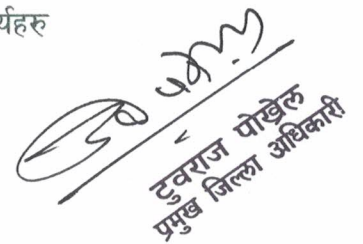 र्यहरु
टुवराज पोखेल
प्रमुख जिल्ला अधिकारी